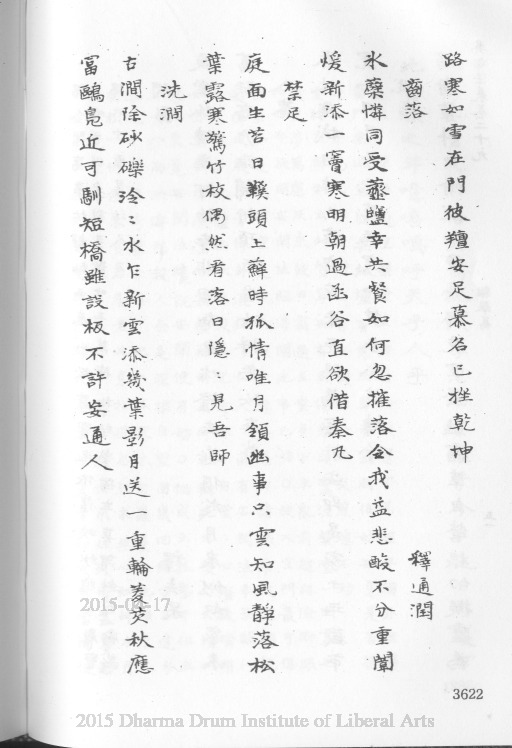 路寒如雪在門彼羶安足慕名已挫乾坤
齒落
釋通潤
氷蘗憐同受虀鹽幸共餐如何忽摧落令我益悲酸不分重聞
煖新添一竇寒明朝過函谷直欲借秦丸
禁足
庭面生苔日鞵頭上蘚時孤情唯月領幽事只雲知風靜落松
葉露寒驚竹枝偶然看落日隱〻見吾師
洗澗
古澗除砂礫泠〻水乍新雲添幾葉影月送一重輪菱芡秋應
富鷗鳧近可馴短橋雖設板不許安通人
3622
2015-08-17
2015 Dharma Drum Institute of Liberal Arts